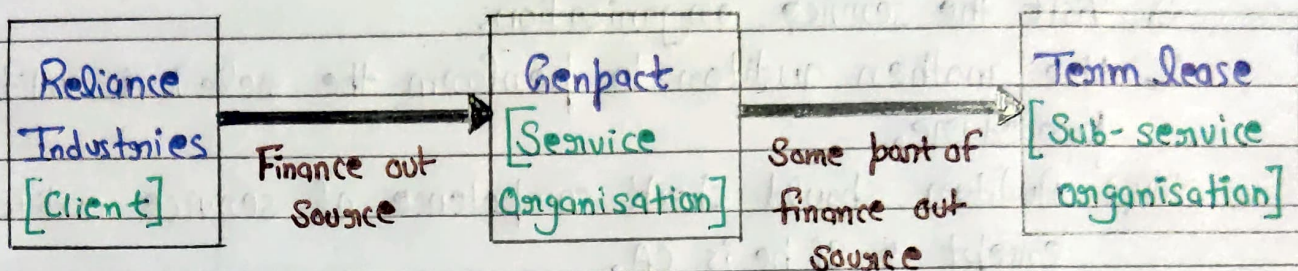 Reliance
Industries
[Client]
Finance out
Source
Genpact
[Service
Organisation]
Some part of
finance out
source
Term lease
[Sub-service
organisation]